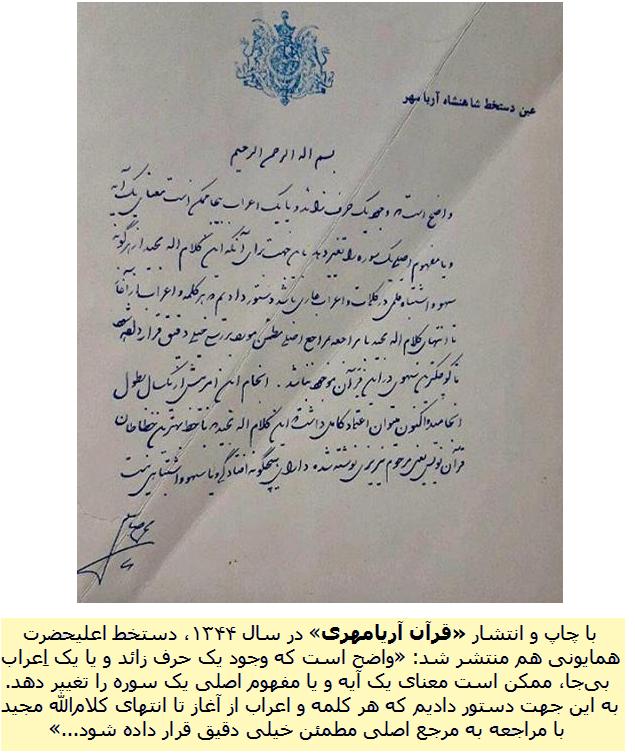 عین دستخط شاهنشاه آریامهر
بسم اله الرحمن الرحیم
واضح است که وجود یک حرف زائد و یا یک اعراب بیجا ممکن است معنای یک آیه
و یا مفهوم اصلی یک سوره را تغییر دهد باین جهت برای آنکه این کلام اله مجید از هر گونه
سهو و اشتباه علمی در کلمات و اعراب عاری باشد دستور دادیم که هر کلمه و اعراب از آغاز
تا انتهای کلام اله مجید با مراجعه بمراجع اصلی مطمئن مورد بررسی خیلی دقیق قرار داده شود
تا کوچکترین سهوی در این قرآن موجود نباشد. انجام این امر بیش از یکسال بطول
انجامید و اکنون میتوان اعتماد کامل داشت که این کلام اله مجید که با خط بهترین خطاطان
قرآن نویس یعنی مرحوم نیریزی نوشته شده دارای هیچگونه افتادگی و یا سهو و اشتباهی نیست
با چاپ و انتشار «قرآن آریامهری» در سال ۱۳۴۴، دستخط اعلیحضرت
همایونی هم منتشر شد: «واضح است که وجود یک حرف زائد و یا یک اِعراب
بی‌جا، ممکن است معنای یک آیه و یا مفهوم اصلی یک سوره را تغییر دهد.
به این جهت دستور دادیم که هر کلمه و اعراب از آغاز تا انتهای کلام‌الله مجید
با مراجعه به مرجع اصلی مطمئن خیلی دقیق قرار داده شود...»